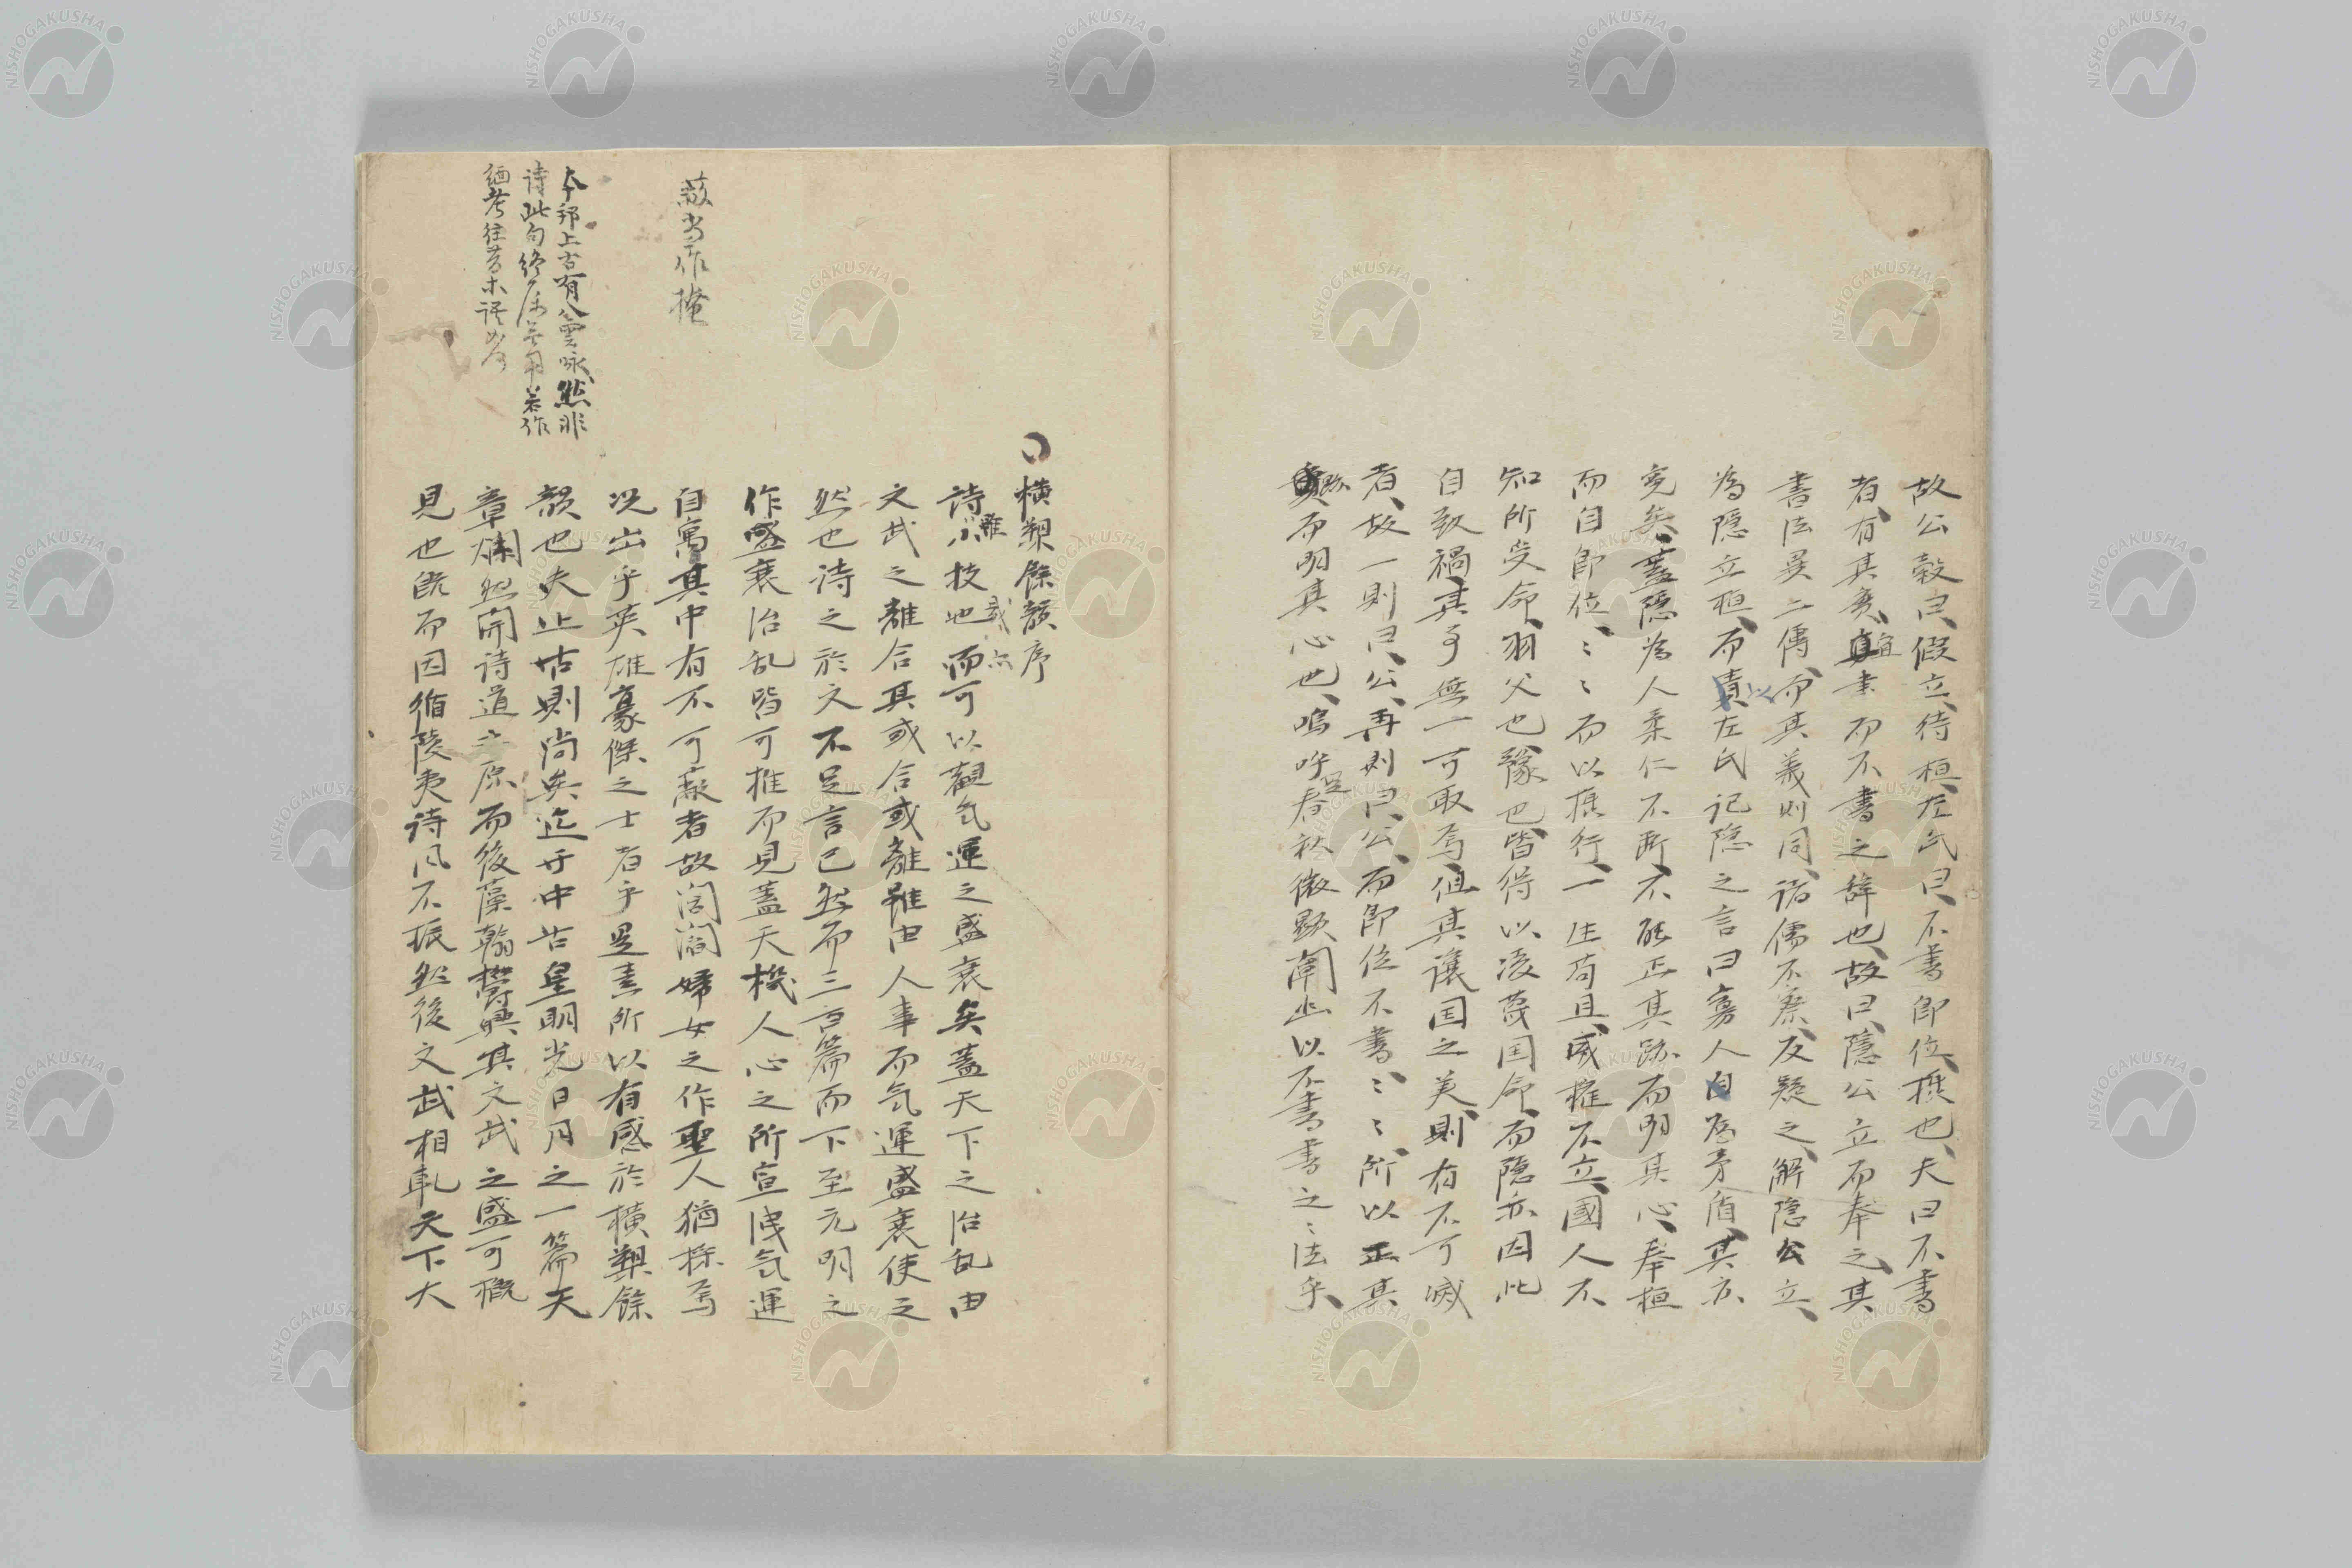 故公穀曰、假立、待桓、左氏曰、不書即位、攝也、夫曰不書
者、有其實、宜書而不書之辞也、故曰、隠公立而奉之、其
書法異二傳、而其義則同、諸儒不察、反疑之、解隠公立、
為隠立桓、而責左氏記隠之言曰寡人自為矛盾、其亦
寃矣、蓋隠為人柔仁不断、不能正其跡而明其心、奉桓
而自即位、〻〻而以攝行、一往苟且、威権不立、國人不
知所受命、羽父也豫也、皆得以凌蔑国命、而隠亦因此
自致禍、其事無一可取焉、但其譲国之美、則有不可滅
者、故一則曰、公、再則曰、公、而即位不書、〻〻所以正其
跡而明其心也、嗚呼是春秋微顕闡幽以不書書之〻法乎、
横槊餘韻序
詩雖小技也而或亦可以観気運之盛衰矣蓋天下之治乱由
文武之離合其或合或離雖由人事而気運盛衰使之
然也詩之於文不足言已然而三百篇而下至元明之
作盛衰治乱皆可推而見蓋天機人心之所宣洩気運
自寓其中有不可蔽者故閭閻婦女之作聖人猶採焉
况出乎英雄豪傑之士者乎是其所以有感於横槊餘
韻也夫上古則尚矣迄乎中古皇明光日月之一篇天
章爛然開詩道之原而後藻翰欝興其文武之盛可概
見也既而因循陵夷詩風不振然後文武相軋天下大
蔽当作掩
本邦上古有八雲咏、然非
詩此句終属無用若作
緬考往昔木